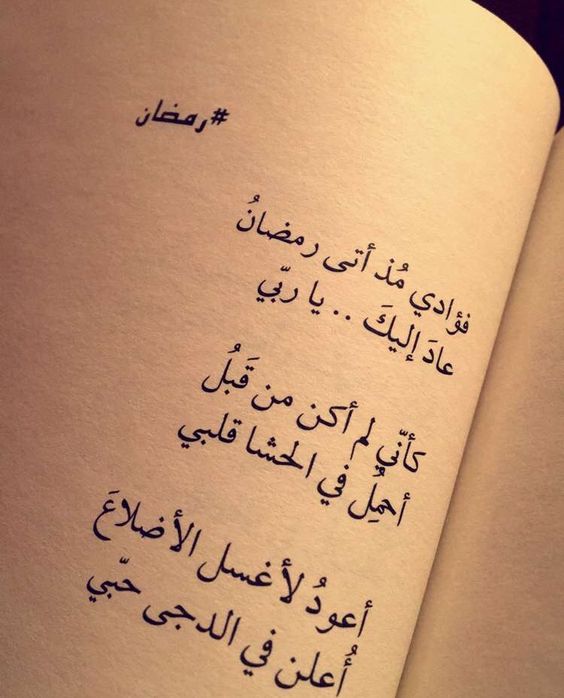 #رمضان
فؤادي مُذ أتى رمضانُ
عادَ إليكَ .. يا ربّي
كأنّي لم أكن من قَبلُ
أحمِلُ في الحشا قلبي
أعودُ لأغسل الأضلاعَ
أُعلن في الدجى حبّي